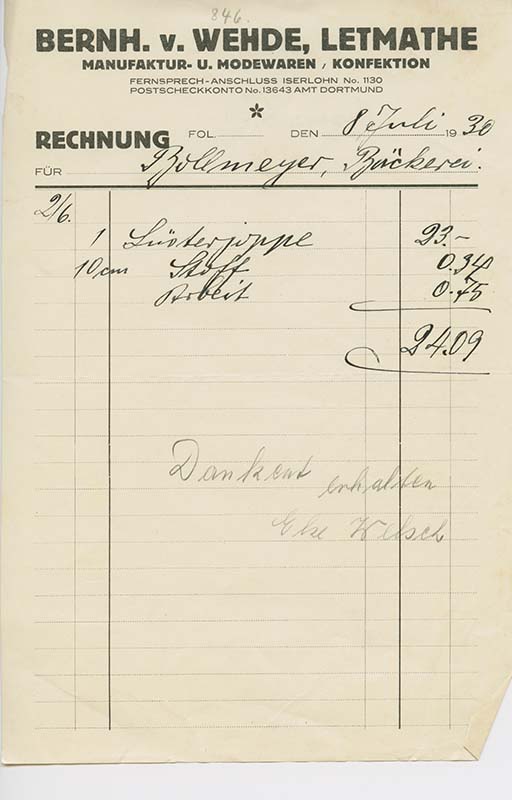 846.
BERNH. v. WEHDE, LETMATHE
MANUFAKTUR- U. MODEWAREN, KONFEKTION
FERNSPRECH-ANSCHLUSS ISERLOHN No. 1130
POSTSCHECKKONTO No. 13643 AMT DORTMUND
RECHNUNG FOL. DEN 8 Juli 1930
FÜR Bollmeyer, Bäckerei.
2/6.
1 Lüsterjoppe 23.-
10 cm Stoff 0.34
Arbeit 0.75
24.09
Dankend erhalten
Else Welsch